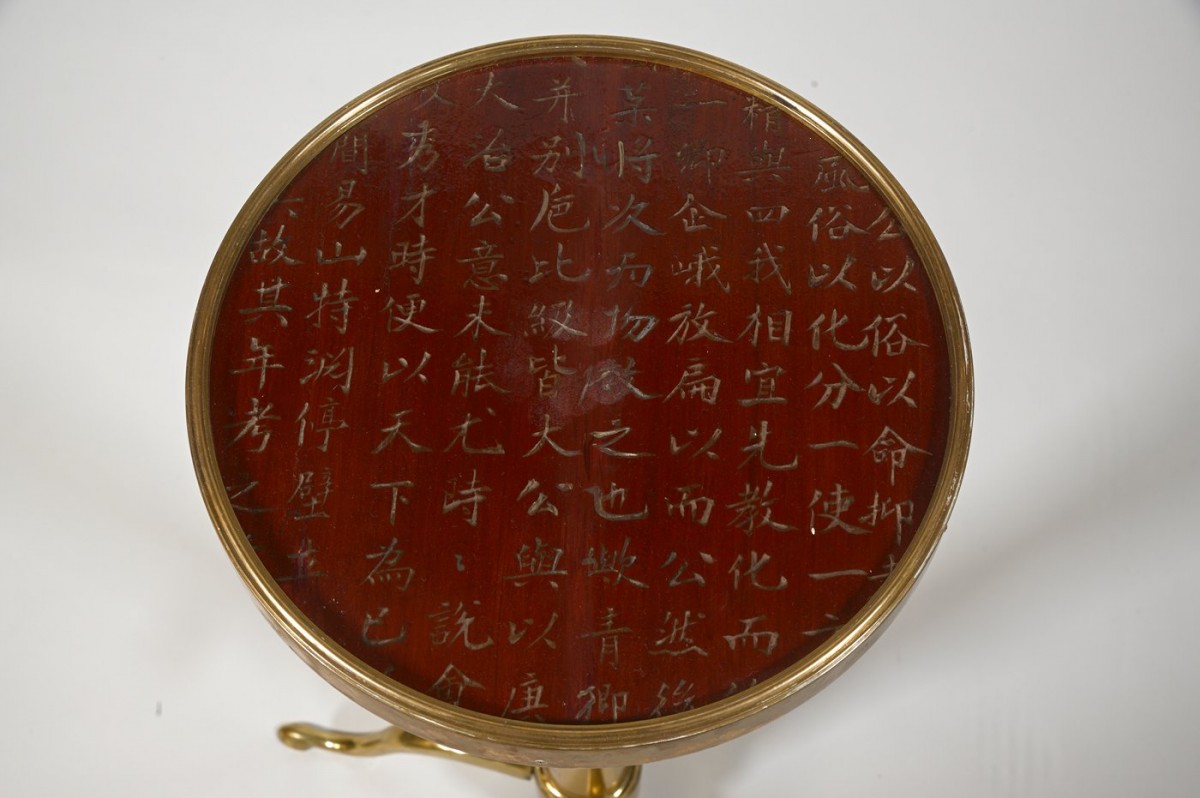 公以俗以命抑
風俗以化分一使一
精與四我相宜先教化而
卿企峨放扁以而公然後
某将次而物故之也歟青卿
并别庖比级皆大公與以庚
大台公意未能尤時〻説會
秀才時便以天下為已
間易山特澗停壁生
故其年考之